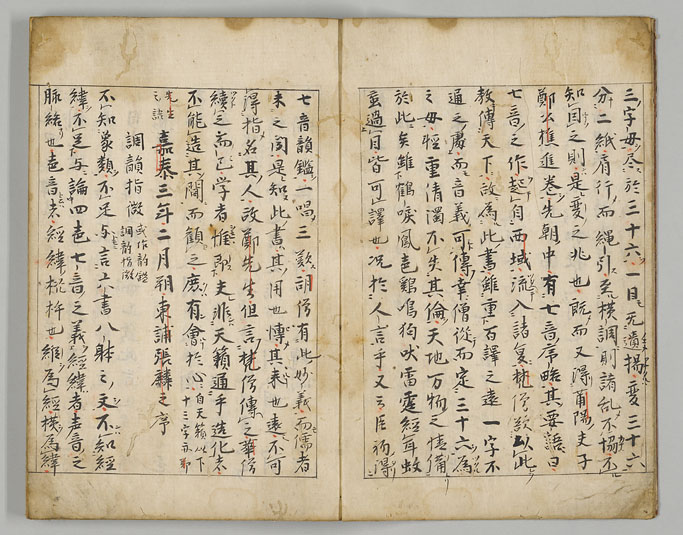 三字母尽於三十六一目无遺揚変三十六
分二紙肩行而繩引至横調則諸乱不協不
知因之則是変之兆也既而又得莆陽夫子
鄭公樵進巻先朝中有七音序略其要語曰
七音之作起自西域流入諸夏梵僧欲以此
教傳天下故為此書雖重百譯之遠一字不
通之處而音義可傳華僧從而定三十六為
之母輕重清濁不失其倫天地万物之情備
於此矣雖鶴唳風声鷄鳴狗吠雷霆經耳蚊
虻過目皆可譯也况於人言乎又云臣初得
七音韻鑑一唱三歎胡僧有此妙義而儒者
未之聞是知此書其用也博其来也遠不可
得指名其人故鄭先生但言梵僧傳之華僧
續之而已学者惟即夫非天籟通乎造化者
不能造其閫而観之庶有會於心自天籟以下
十三字亦鄭
先生
之語
嘉泰三年二月朔東浦張麟之序
調韻指微
或作韵鑑
調韵指微
不知象類不足与言六書八躰之文不知經
緯不足与論四声七音之義經緯者声音之
脉絡也声音者經緯機杼也縦為經横為緯